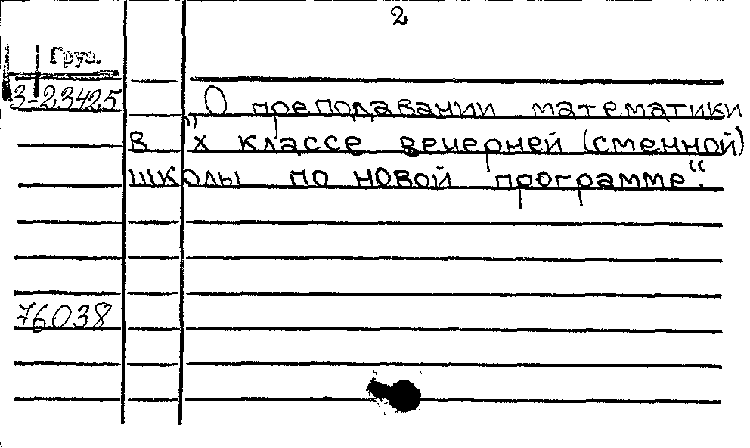 2
Груз.
3-23425
„О преподавании математики
в X классе вечерней (сменной)
школы по новой программе“.
76038